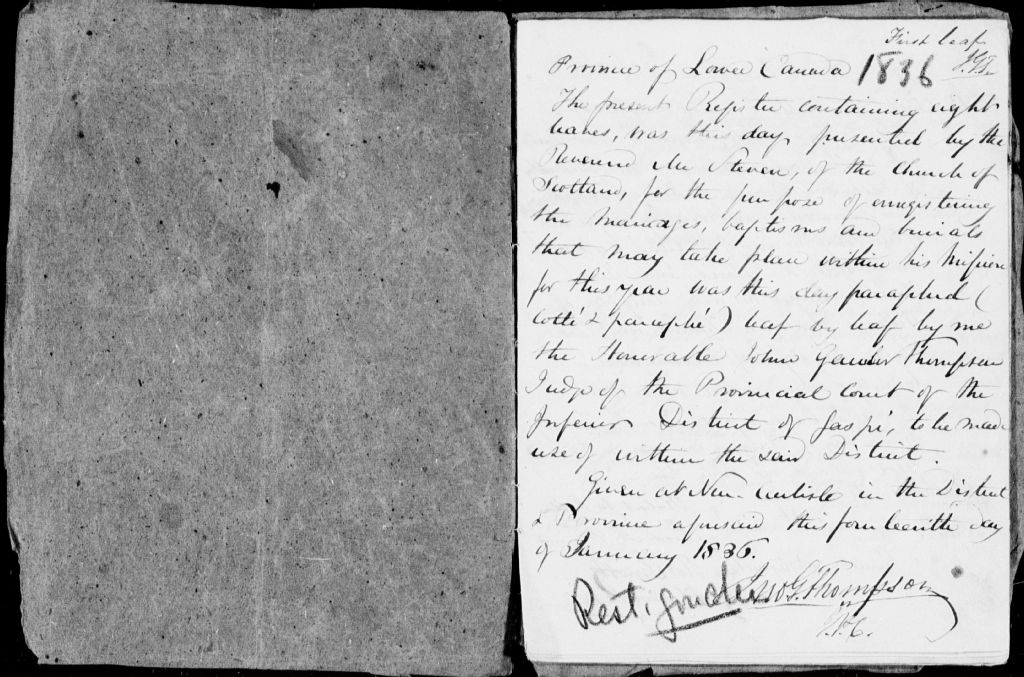 First leaf
J.G.T.
Province of Lower Canada 1836
The present Register containing eight
leaves, was this day presented by the
Reverend Mr Steven, of the Church of
Scotland, for the purpose of enregistering
the marriages, baptisms and burials
that may take place within his Mission
for this year was this day paraphed (
cotté & paraphé) leaf by leaf by me
the Honorable John Gawler Thompson
Judge of the Provincial Court of the
Inferior District of Gaspé, to be made
use of within the said District.
Given at New Carlisle in the District
& Province aforesaid this fourteenth day
of January 1836.
Jno G. Thompson
J.P.C.
Restigouche